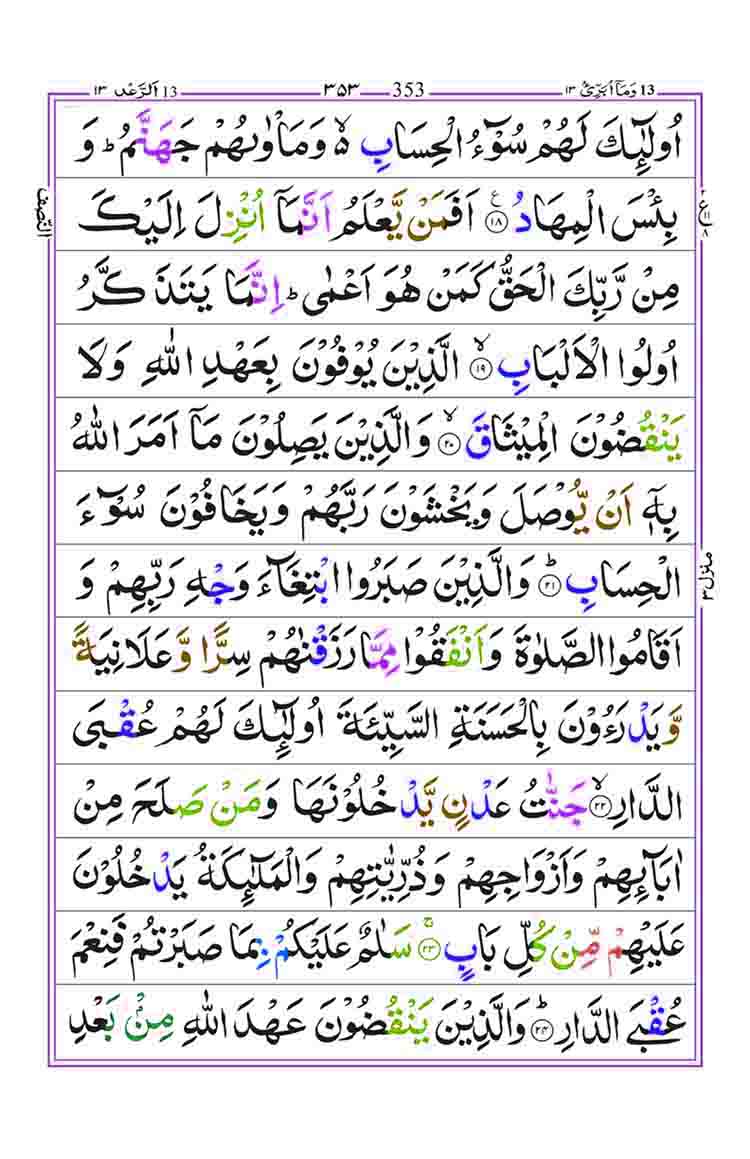 13 اَلرَّعْد ١٣
353 ٣٥٣
13 وَمَآ اُبَرِّئُ ١٣
اُولٰٓئِكَ لَهُمْ سُوْٓءُ الْحِسَابِ ۙ۬ وَمَاْوٰىهُمْ جَهَنَّمُ ؕ وَ
بِئْسَ الْمِهَادُ ۧ‏﴿۱۸﴾ اَفَمَنْ يَّعْلَمُ اَنَّمَاۤ اُنْزِلَ اِلَيْكَ
مِنْ رَّبِّكَ الْحَقُّ كَمَنْ هُوَ اَعْمٰى ؕ اِنَّمَا يَتَذَكَّرُ
اُولُوا الْاَلْبَابِ ۙ‏﴿۱۹﴾ الَّذِيْنَ يُوْفُوْنَ بِعَهْدِ اللّٰهِ وَلَا
يَنْقُضُوْنَ الْمِيْثَاقَ ۙ‏﴿۲۰﴾ وَالَّذِيْنَ يَصِلُوْنَ مَاۤ اَمَرَ اللّٰهُ
بِهٖۤ اَنْ يُّوْصَلَ وَيَخْشَوْنَ رَبَّهُمْ وَيَخَافُوْنَ سُوْٓءَ
الْحِسَابِ ؕ‏﴿۲۱﴾ وَالَّذِيْنَ صَبَرُوا ابْتِغَآءَ وَجْهِ رَبِّهِمْ وَ
اَقَامُوا الصَّلٰوةَ وَاَنْفَقُوْا مِمَّا رَزَقْنٰهُمْ سِرًّا وَّعَلَانِيَةً
وَّيَدْرَءُوْنَ بِالْحَسَنَةِ السَّيِّئَةَ اُولٰٓئِكَ لَهُمْ عُقْبَى
الدَّارِ ۙ‏﴿۲۲﴾ جَنّٰتُ عَدْنٍ يَّدْخُلُوْنَهَا وَمَنْ صَلَحَ مِنْ
اٰبَآئِهِمْ وَاَزْوَاجِهِمْ وَذُرِّيّٰتِهِمْ وَالْمَلٰٓئِكَةُ يَدْخُلُوْنَ
عَلَيْهِمْ مِّنْ كُلِّ بَابٍ ۚ‏﴿۲۳﴾ سَلٰمٌ عَلَيْكُمْ بِمَا صَبَرْتُمْ فَنِعْمَ
عُقْبَى الدَّارِ ؕ‏﴿۲۴﴾ وَالَّذِيْنَ يَنْقُضُوْنَ عَهْدَ اللّٰهِ مِنْۢ بَعْدِ
النّصف
منزل ٣